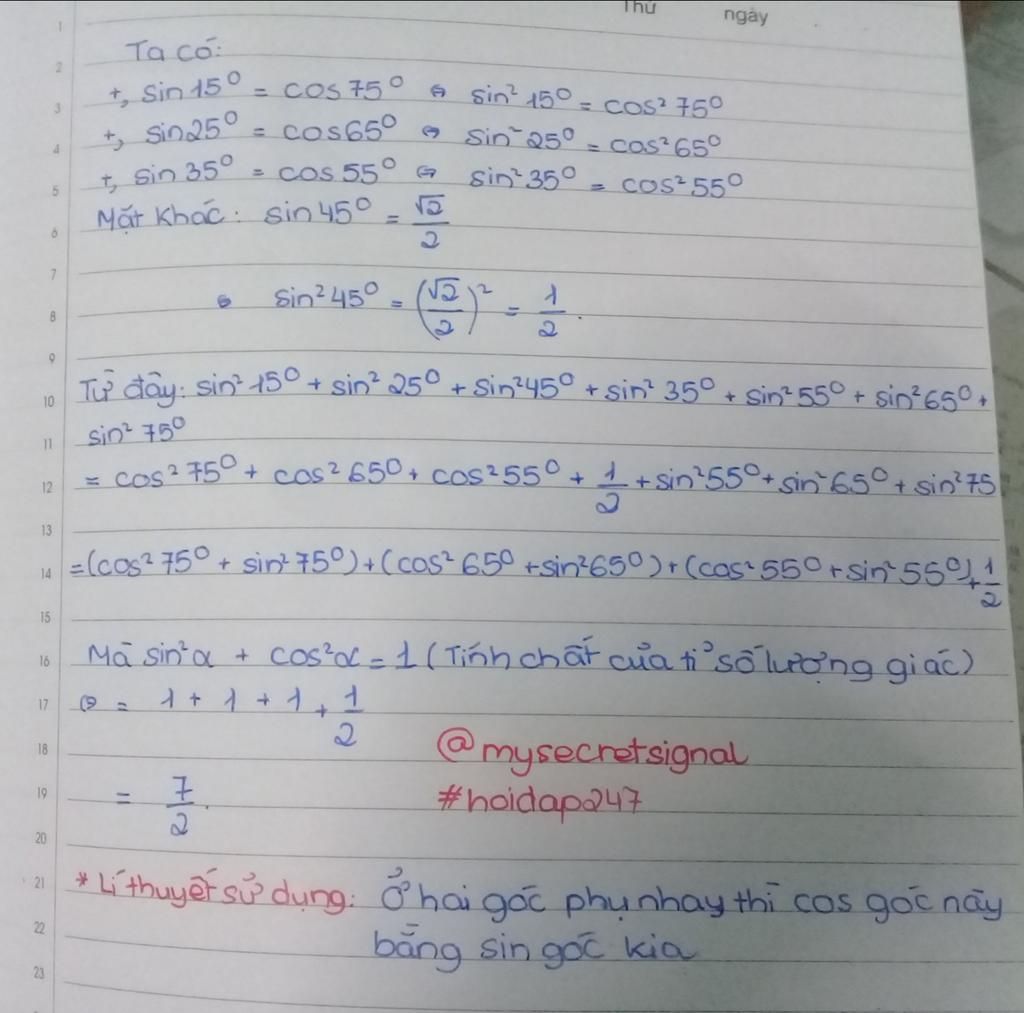 Thứ ngày
Ta có:
+, sin 15⁰ = cos 75⁰ ⇔ sin² 15⁰ = cos² 75⁰
+, sin 25⁰ = cos 65⁰ ⇔ sin² 25⁰ = cos² 65⁰
+, sin 35⁰ = cos 55⁰ ⇔ sin² 35⁰ = cos² 55⁰
Mặt khác: sin 45⁰ = √2/2
⇔ sin² 45⁰ = (√2/2)² = 1/2.
Từ đây: sin² 15⁰ + sin² 25⁰ + sin² 45⁰ + sin² 35⁰ + sin² 55⁰ + sin² 65⁰ +
sin² 75⁰
= cos² 75⁰ + cos² 65⁰ + cos² 55⁰ + 1/2 + sin² 55⁰ + sin² 65⁰ + sin² 75
= (cos² 75⁰ + sin² 75⁰) + (cos² 65⁰ + sin² 65⁰) + (cos² 55⁰ + sin² 55⁰) + 1/2
Mà sin²α + cos²α = 1 (Tính chất của tỉ số lượng giác)
⇔ = 1 + 1 + 1 + 1/2
@mysecretsignal
= 7/2.
#hoidap247
* Lí thuyết sử dụng: Ở hai góc phụ nhay thì cos góc này
bằng sin góc kia
1
2
3
4
5
6
7
8
9
10
11
12
13
14
15
16
17
18
19
20
21
22
23